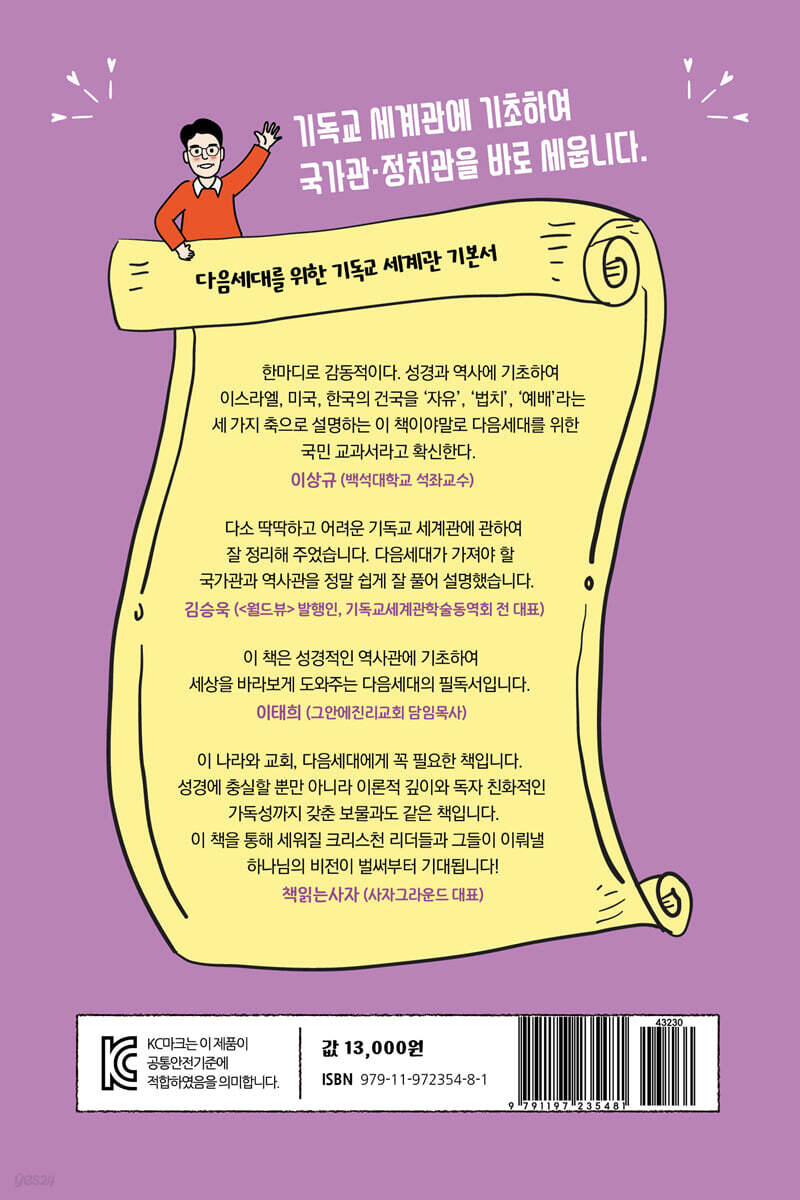 기독교 세계관에 기초하여
국가관·정치관을 바로 세웁니다.
다음세대를 위한 기독교 세계관 기본서
한마디로 감동적이다. 성경과 역사에 기초하여
이스라엘, 미국, 한국의 건국을 ‘자유’, ‘법치’, ‘예배’라는
세 가지 축으로 설명하는 이 책이야말로 다음세대를 위한
국민 교과서라고 확신한다.
이상규 (백석대학교 석좌교수)
다소 딱딱하고 어려운 기독교 세계관에 관하여
잘 정리해 주었습니다. 다음세대가 가져야 할
국가관과 역사관을 정말 쉽게 잘 풀어 설명했습니다.
김승욱 (<월드뷰> 발행인, 기독교세계관학술동역회 전 대표)
이 책은 성경적인 역사관에 기초하여
세상을 바라보게 도와주는 다음세대의 필독서입니다.
이태희 (그안에진리교회 담임목사)
이 나라와 교회, 다음세대에게 꼭 필요한 책입니다.
성경에 충실할 뿐만 아니라 이론적 깊이와 독자 친화적인
가독성까지 갖춘 보물과도 같은 책입니다.
이 책을 통해 세워질 크리스천 리더들과 그들이 이뤄낼
하나님의 비전이 벌써부터 기대됩니다!
책읽는사자 (사자그라운드 대표)
KC마크는 이 제품이
공통안전기준에
적합하였음을 의미합니다.
값 13,000원
ISBN 979-11-972354-8-1
43230
9 791197 235481
yes24